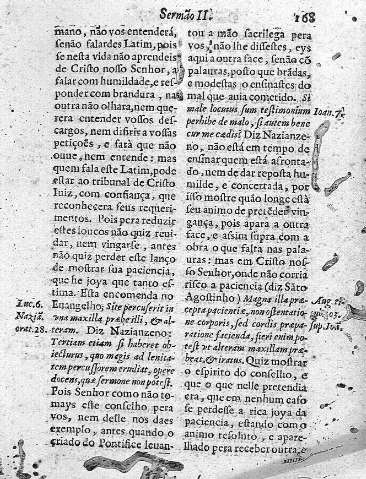 Sermão II.
168
mano, não vos entenderá,
senão falardes Latim, pois
se nesta vida não aprendeis
de Cristo nosso Senhor, a
falar com humildade, e res-
ponder com brandura, na
outra não olhara, nem que-
rera entender vossos des-
cargos, nem diferir a vossas
petições, e fará que não
ouue, nem entende: mas
quem fala este Latim, pode
estar ao tribunal de Cristo
Iuiz, com confiança, que
reconhecera seus requeri-
mentos. Pois pera reduzir
estes loucos não quiz reui-
dar, nem vingarse, antes
não quiz perder este lanço
de mostrar sua paciencia,
que he joya que tanto es-
tima. Esta encomenda no
Euangelho; Si te percuserit in
vna maxilla præbe illi, & al-
teram. Diz Nazianzeno:
Tertiam etiam si haberet ob-
iecturus, quo magis ad lenita-
tem percussorem erudiat, opere
docens, quæ sermone non potest.
Pois Senhor como não to-
mays este conselho pera
vos, nem desse nos daes
exemplo, antes quando o
criado do Pontifice leuan-
Luc. 6.
Naziã.
orat. 28.
tou a mão sacrilega pera
vos, não lhe dissestes, eys
aqui a outra face, senão cõ
palauras, posto que brãdas,
e modestas o ensinastes do
mal que auia comerido. Si
male locutus sum testimonium
perhibe de malo, si autem bene
cur me cædis? Diz Nazianze-
no, não está em tempo de
ensinar quem está afronta-
do, nem de dar reposta hu-
milde, e concertada, por
isso mostre quão longe está
seu animo de pretẽder vin-
gança, pois apara a outra
face, e assim supra com a
obra o que falta nas pala-
uras: mas em Cristo nos-
so Senhor, onde não corria
risco a paciencia (diz Sãto
Agostinho) Magna illa præ-
cepta pacientiæ, non ostentatio-
ne corporis, sed cordis præpa-
ratione facienda, fieri enim po-
test vt alteram maxillam præ-
beat, & iratus. Quiz mostrar
o espirito do conselho, e
que o que nelle pretendia
era, que em nenhum caso
se perdesse a rica joya da
paciencia, estando com o
animo resoluto, e apare-
lhado pera receber outra, e
Ioan. 7.
sup Ioã.